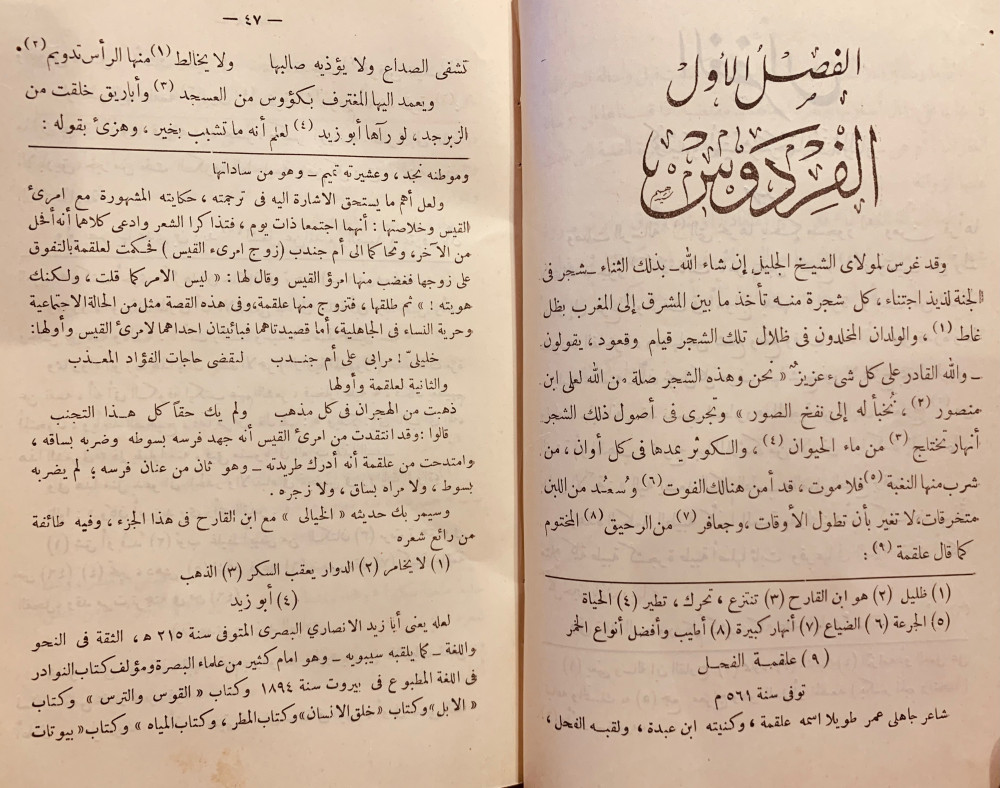 الفصل الأول
الفردوس
وقد غرس لمولاى الشيخ الجليل إن شاء الله ـ بذلك الثناء ـ شجر فى
الجنة لذيذ اجتناء، كل شجرة منه تأخذ ما بين المشرق إلى المغرب بظل
غاط (١) ، والولدان المخلدون فى ظلال تلك الشجر قيام وقعود، يقولون
ـ والله القادر على كل شىء عزيز ـ « نحن وهذه الشجر صلة من الله لعلى ابن
منصور (٢) ، نُخبأ له إلى نفخ الصور » وتجرى فى أصول ذلك الشجر
أنهار تختلج (٣) من ماء الحيوان (٤) ، والكوثر يمدها فى كل أوان، من
شرب منها النغبة (٥) فلا موت، قد أمن هنالك الفوت (٦) وسُعد من اللبن
متخرقات، لا تغير بأن تطول الأوقات، وجعافر (٧) من الرحيق (٨) المختوم
كما قال علقمة (٩) :
(١) ظليل (٢) هو ابن القارح (٣) تنتزع ، تحرك ، تطير (٤) الحياة
(٥) الجرعة (٦) الضياع (٧) أنهار كبيرة (٨) أطيب وأفضل أنواع الخمر
(٩) علقمة الفحل
توفى سنة ٥٦١ م
شاعر جاهلى عمر طويلا اسمه علقمة ، وكنيته ابن عبدة ، ولقبه الفحل ،
— ٤٧ —
تشفى الصداع ولا يؤذيه صالبها ولا يخالط (١) منها الرأس تدويم (٢) .
ويعمد اليها المغترف بكؤوس من العسجد (٣) وأباريق خلقت من
الزبرجد، لو رآها أبو زيد (٤) لعلم أنه ما تشبب بخير ، وهزئ بقوله :
وموطنه نجد ، وعشيرته تميم ـ وهو من ساداتها
ولعل أهم ما يستحق الاشارة اليه فى ترجمته ، حكايته المشهورة مع امرئ
القيس وخلاصتها : أنهما اجتمعا ذات يوم ، فتذاكرا الشعر وادعى كلاهما أنه أفحل
من الآخر، وتحاكما الى أم جندب (زوج امرىء القيس ) فحكمت لعلقمة بالتفوق
على زوجها فغضب منها امرؤ القيس وقال لها : « ليس الامر كما قلت ، ولكنك
هويته ! » ثم طلقها ، فتزوج منها علقمة، وفى هذه القصة مثل من الحالة الاجتماعية
وحرية النساء فى الجاهلية، أما قصيدتاهما فبائيتان احداهما لامرئ القيس وأولها:
خليلىّ ! مرابى على أم جندب لنقضى حاجات الفؤاد المعذب
والثانية لعلقمة وأولها
ذهبت من الهجران فى كل مذهب ولم يك حقاً كل هذا التجنب
قالوا : وقد انتقدت من امرئ القيس أنه جهد فرسه بسوطه وضربه بساقه ،
وامتدحت من علقمة أنه أدرك طريدته ـ وهو ثان من عنان فرسه ؛ لم يضربه
بسوط ، ولا مراه بساق ، ولا زجره .
وسيمر بك حديثه « الخيالى » مع ابن القارح فى هذا الجزء ، وفيه طائفة
من رائع شعره
(١) لا يخامر (٢) الدوار يعقب السكر (٣) الذهب
(٤) أبو زيد
لعله يعنى أبا زيد الانصارى البصرى المتوفى سنة ٢١٥ هـ ، الثقة فى النحو
واللغة ـ كما يلقبه سيبويه ـ وهو امام كثير من علماء البصرة ومؤلف كتاب النوادر
فى اللغة المطبوع فى بيروت سنة ١٨٩٤ وكتاب « القوس والترس » وكتاب
« الابل » وكتاب « خلق الانسان » وكتاب المطر ، وكتاب المياه » وكتاب « بيوتات